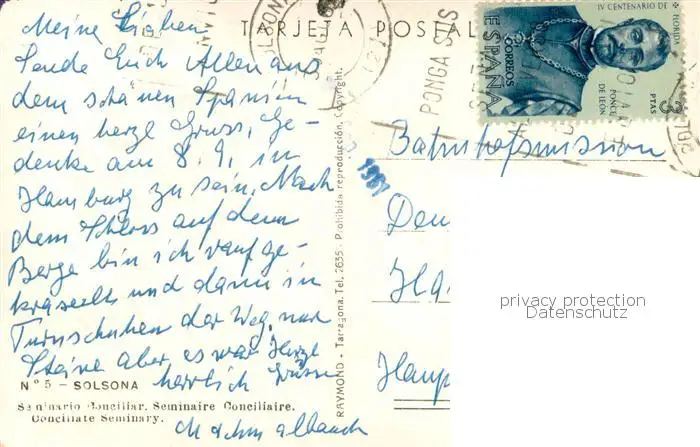 TARJETA POSTAL
Meine Lieben
Sende Euch Allen aus
dem schönen Spanien
einen herzl Gruss, Ge-
denke am 8. 9. in
Hamburg zu sein. Nach
dem Schloss auf dem
Berge bin ich rauf ge-
kraxelt und dann in
Turnschuhen der Weg, nur
Steine aber es war
herrlich Grüsse
Nº 5 - SOLSONA
Seminario Conciliar. Seminaire Conciliaire.
Conciliate Seminary.
RAYMOND - Tarragona. Tel. 2635 - Prohibida reproducción. Copyright.
SOLSONA
PONGA SUS
IV CENTENARIO DE FLORIDA
ESPAÑA
CORREOS
PONCE
DE LEON
3
PTAS
Bahnhofsmission
Ha
Haup
privacy protection
Datenschutz